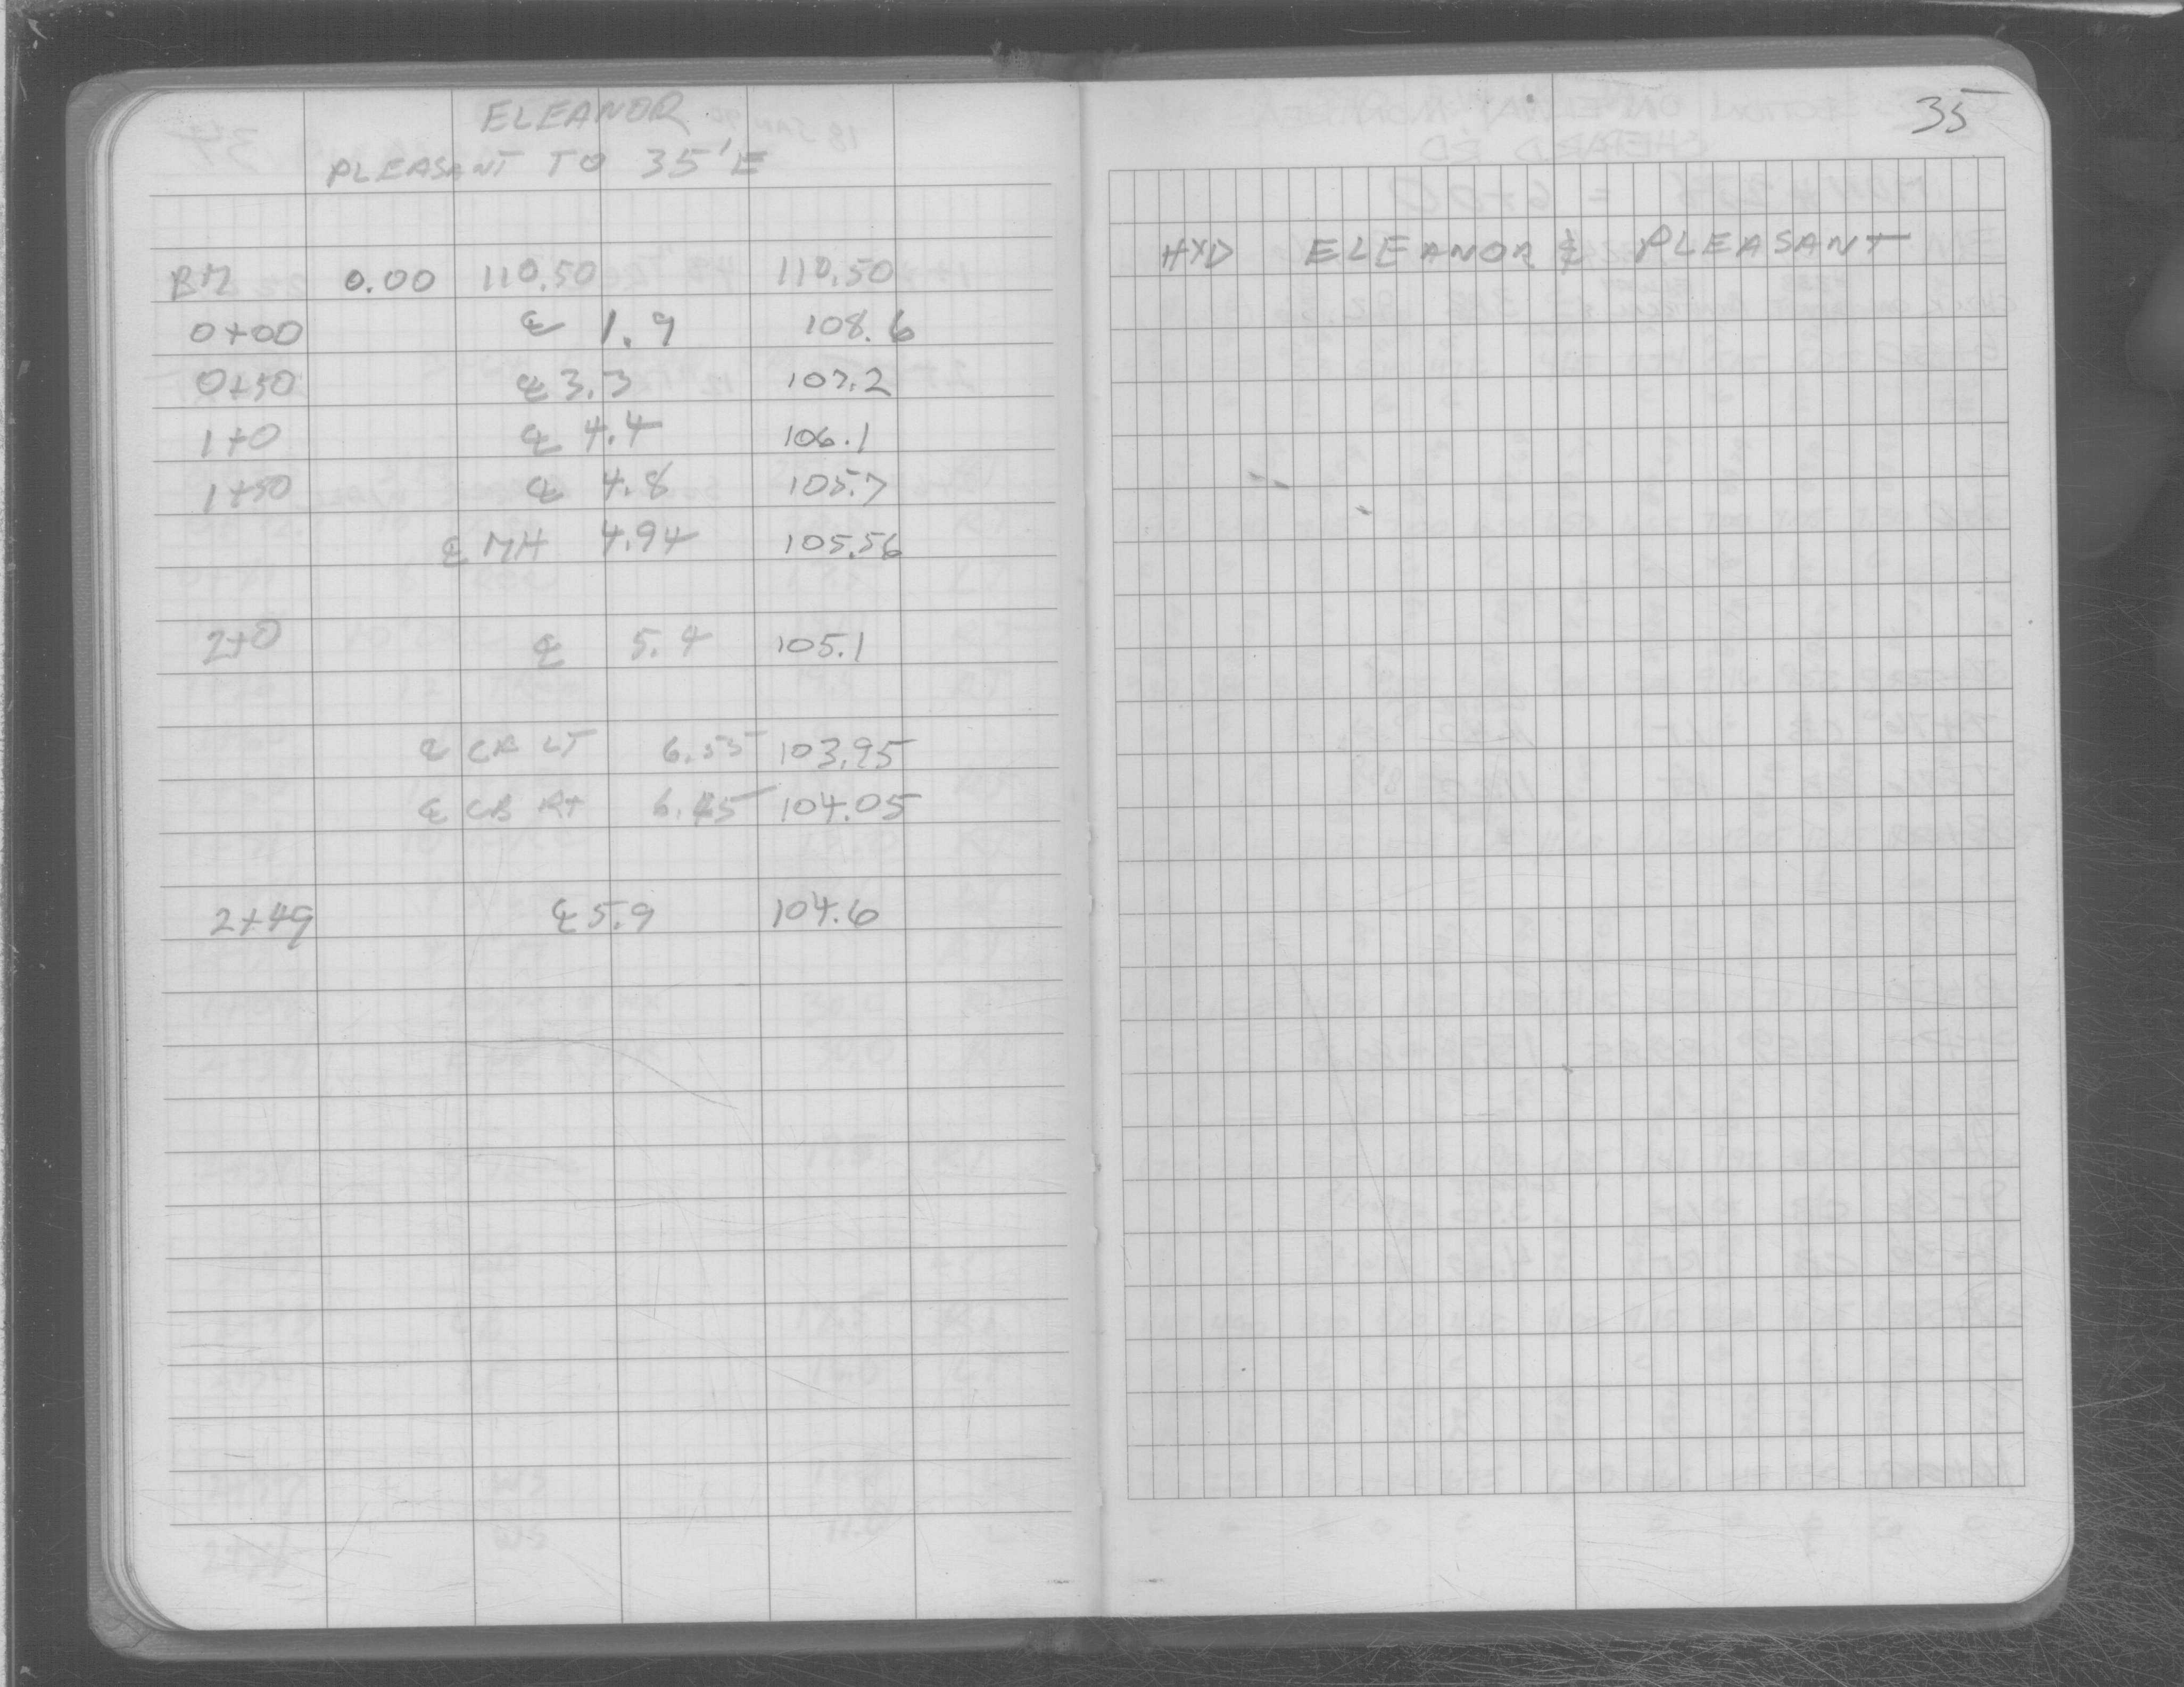 ELEANOR
PLEASANT TO 35'E
BM 0.00 110.50 110.50
0+00 ℄ 1.9 108.6
0+50 ℄ 3.3 107.2
1+0 ℄ 4.4 106.1
1+50 ℄ 4.8 105.7
℄ MH 4.94 105.56
2+0 ℄ 5.4 105.1
℄ CB LT 6.55 103.95
℄ CB RT 6.45 104.05
2+49 ℄ 5.9 104.6
35
HYD ELEANOR & PLEASANT